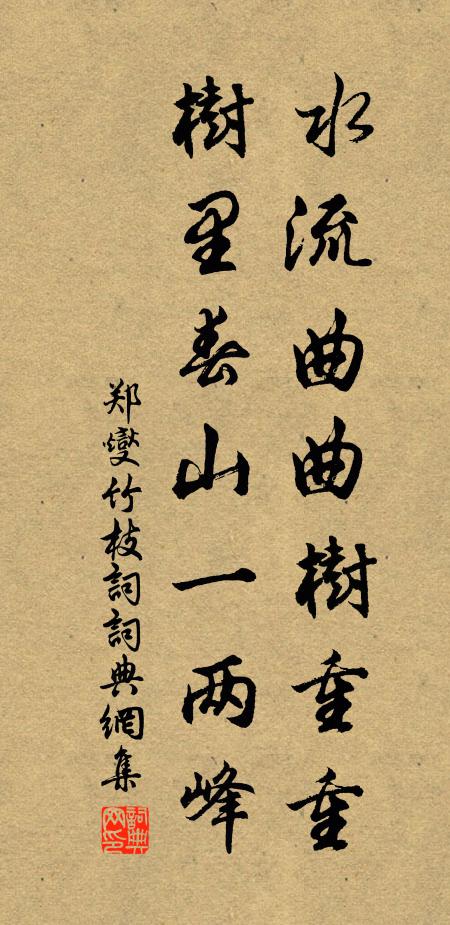 水流曲曲樹重重
樹里春山一两峰
郑燮竹枝詞詞典網集
詞典網印